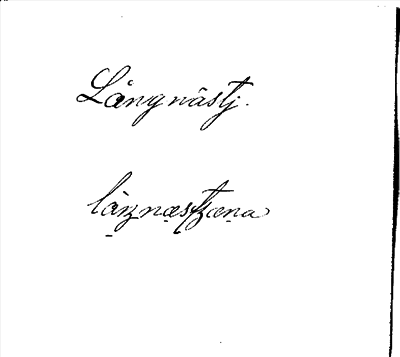 Långnästj.
låŋnæstjæṇa